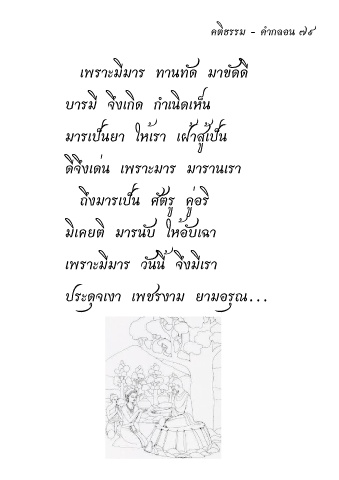 คติธรรม - คำกลอน ๗๙
เพราะมีมาร ทานทัด มาขัดดี
บารมี จึงเกิด กำเนิดเห็น
มารเป็นยา ให้เรา เฝ้าสู้เป็น
ดีจึงเด่น เพราะมาร มารานเรา
ถึงมารเป็น ศัตรู คู่อริ
มิเคยติ มารนับ ให้อับเฉา
เพราะมีมาร วันนี้ จึงมีเรา
ประดุจเงา เพชรงาม ยามอรุณ...